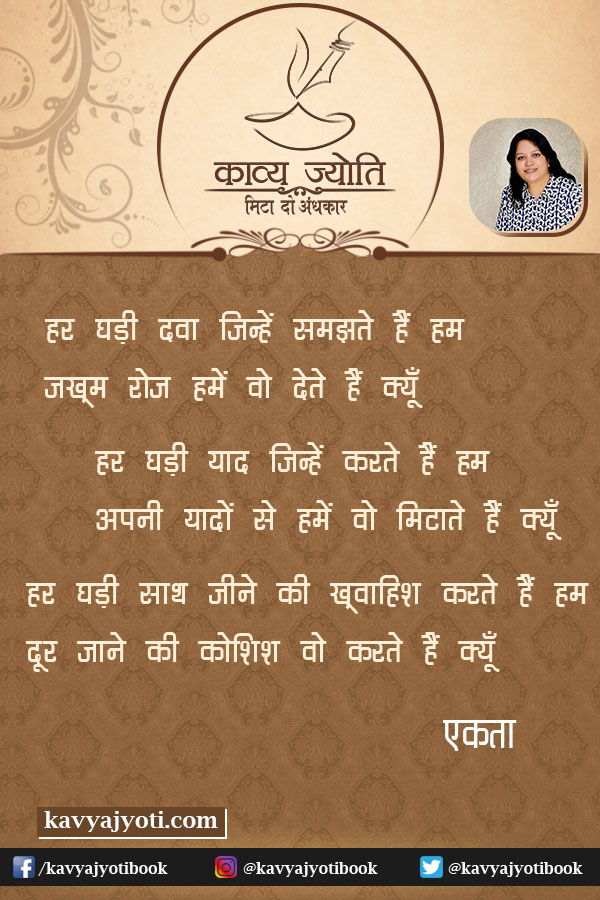 काव्य ज्योति
मिटा दो अंधकार
हर घड़ी दवा जिन्हें समझते हैं हम
जख़्म रोज हमें वो देते हैं क्यूँ
हर घड़ी याद जिन्हें करते हैं हम
अपनी यादों से हमें वो मिटाते हैं क्यूँ
हर घड़ी साथ जीने की ख़्वाहिश करते हैं हम
दूर जाने की कोशिश वो करते हैं क्यूँ
एकता
kavyajyoti.com
/kavyajyotibook @kavyajyotibook @kavyajyotibook